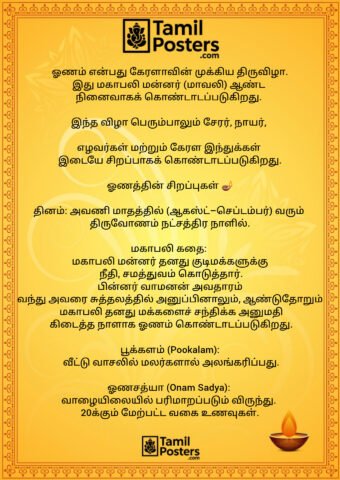 Tamil
Posters
.com
ஓணம் என்பது கேரளாவின் முக்கிய திருவிழா.
இது மகாபலி மன்னர் (மாவலி) ஆண்ட
நினைவாகக் கொண்டாடப்படுகிறது.
இந்த விழா பெரும்பாலும் சேரர், நாயர்,
எழவர்கள் மற்றும் கேரள இந்துக்கள்
இடையே சிறப்பாகக் கொண்டாடப்படுகிறது.
ஓணத்தின் சிறப்புகள்
தினம்: அவணி மாதத்தில் (ஆகஸ்ட்–செப்டம்பர்) வரும்
திருவோணம் நட்சத்திர நாளில்.
மகாபலி கதை:
மகாபலி மன்னர் தனது குடிமக்களுக்கு
நீதி, சமத்துவம் கொடுத்தார்.
பின்னர் வாமனன் அவதாரம்
வந்து அவரை சுத்தலத்தில் அனுப்பினாலும், ஆண்டுதோறும்
மகாபலி தனது மக்களைச் சந்திக்க அனுமதி
கிடைத்த நாளாக ஓணம் கொண்டாடப்படுகிறது.
பூக்களம் (Pookalam):
வீட்டு வாசலில் மலர்களால் அலங்கரிப்பது.
ஓணசத்யா (Onam Sadya):
வாழையிலையில் பரிமாறப்படும் விருந்து.
20க்கும் மேற்பட்ட வகை உணவுகள்.
Tamil
Posters
.com